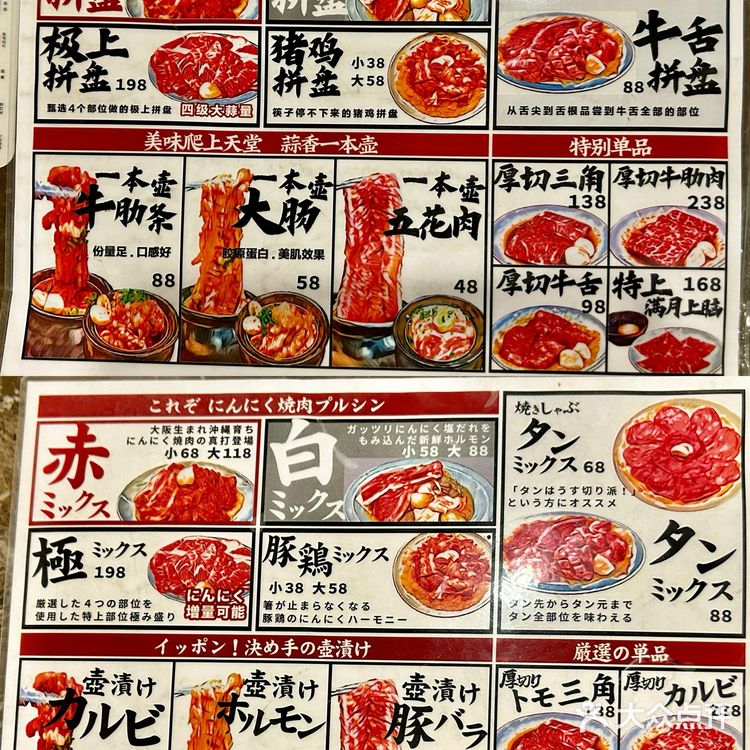 拼盘
拼盘
极上
拼盘 198
甄选4个部位做的极上拼盘
四级大蒜量
猪鸡
拼盘
小38
大58
筷子停不下来的猪鸡拼盘
牛舌
拼盘
88
从舌尖到舌根品尝到牛舌全部的部位
美味爬上天堂 蒜香一本壶
特别单品
一本壶
牛肋条
份量足.口感好
88
一本壶
大肠
胶原蛋白.美肌效果
58
一本壶
五花肉
48
厚切三角
138
厚切牛肋肉
238
厚切牛舌
98
特上
168
满月上脑
これぞ にんにく焼肉プルシン
赤
ミックス
大阪生まれ沖縄育ち
にんにく焼肉の真打登場
小68 大118
白
ミックス
ガッツリにんにく塩だれを
もみ込んだ新鮮ホルモン
小58 大88
焼きしゃぶ
タン
ミックス 68
「タンはうす切り派!」
という方にオススメ
極 ミックス
198
厳選した4つの部位を
使用した特上部位極み盛り
にんにく
増量可能
豚鶏ミックス
小38 大58
箸が止まらなくなる
豚鶏のにんにくハーモニー
タン
ミックス
88
タン先からタン元まで
タン全部位を味わえる
イッポン!決め手の壺漬け
厳選の単品
壺漬け
カルビ
壺漬け
ホルモン
壺漬け
豚バラ
厚切り
トモ三角
138
厚切り
カルビ
238
大众点评